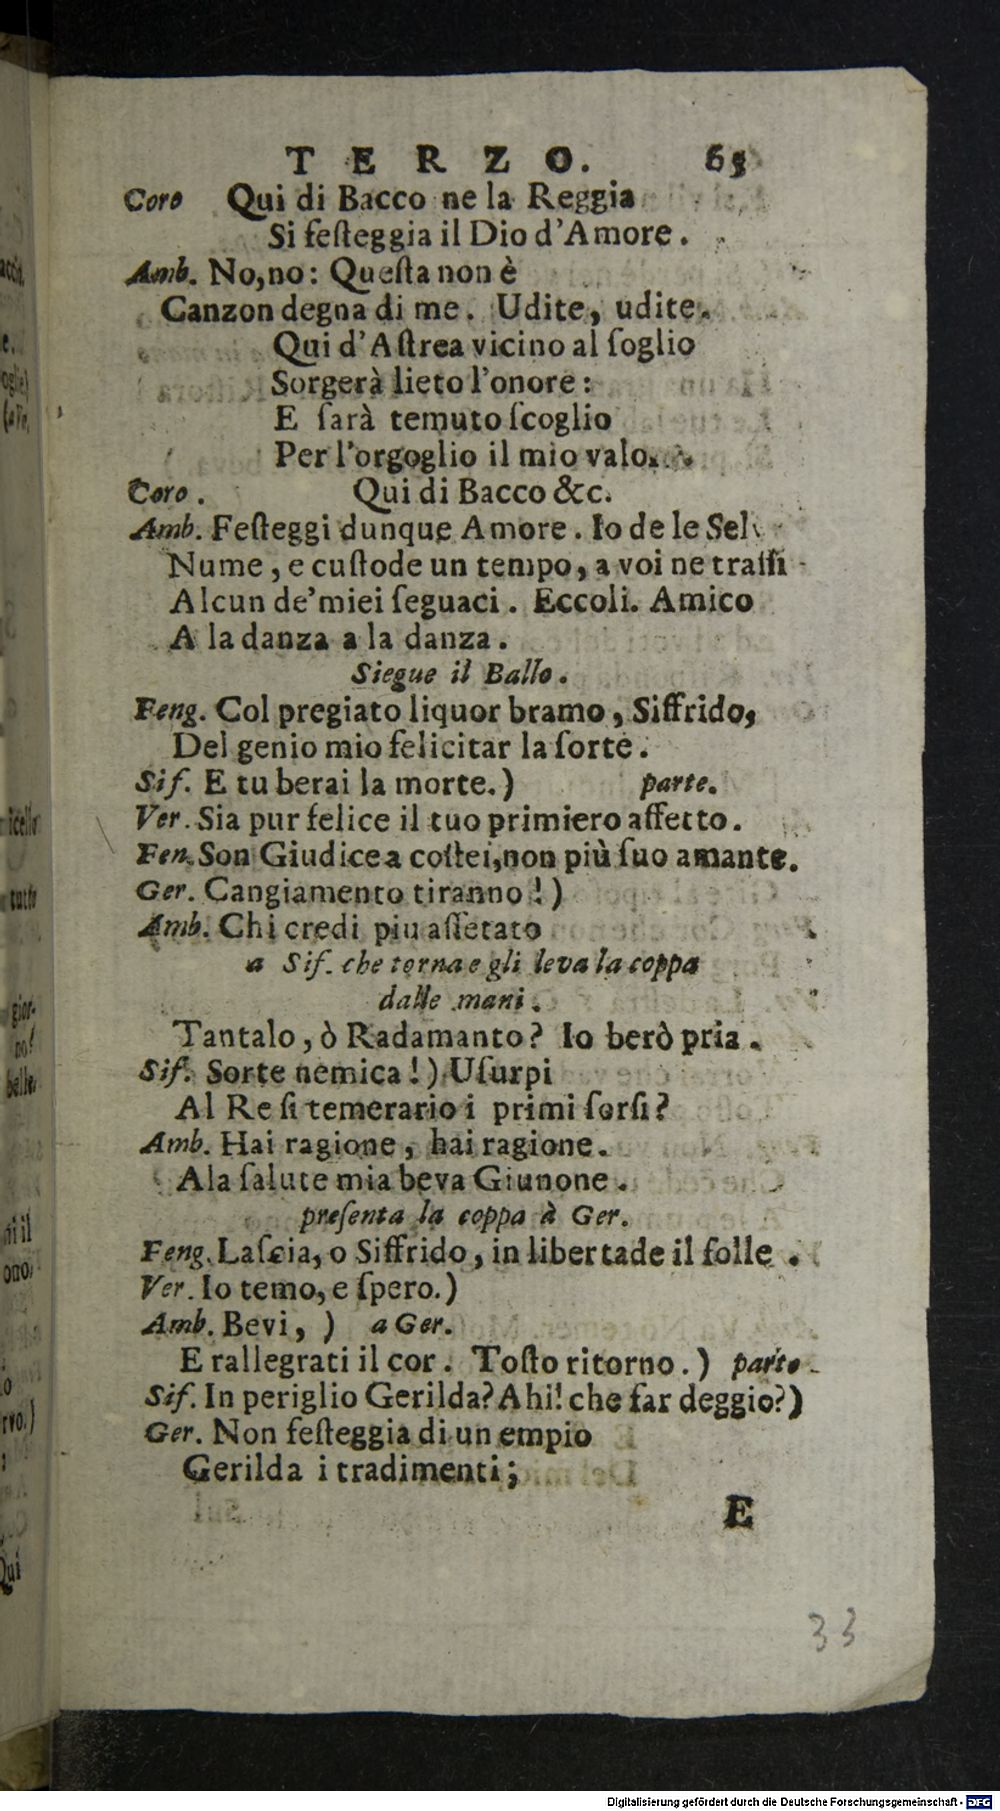 TERZO. 65
Coro Qui di Bacco ne la Reggia
Si feſteggia il Dio d'Amore.
Amb. No, no: Queſta non è
Canzon degna di me. Udite, udite.
Qui d'Aſtrea vicino al ſoglio
Sorgerà lieto l'onore:
E ſarà temuto ſcoglio
Per l'orgoglio il mio valo
Coro. Qui di Bacco &c.
Amb. Feſteggi dunque Amore. Io de le Sel
Nume, e cuſtode un tempo, a voi ne traſſi
Alcun de'miei ſeguaci. Eccoli. Amico
A la danza a la danza.
Siegue il Ballo.
Feng. Col pregiato liquor bramo, Siffrido,
Del genio mio felicitar la ſorte.
Sif. E tu berai la morte.) parte.
Ver. Sia pur felice il tuo primiero affetto.
Fen. Son Giudice a coſtei, non più ſuo amante.
Ger. Cangiamento tiranno!)
Amb. Chi credi piu aſſetato
a Sif. che torna e gli leva la coppa
dalle mani.
Tantalo, ò Radamanto? Io berò pria.
Sif. Sorte nemica!) Uſurpi
Al Re ſi temerario i primi ſorſi?
Amb. Hai ragione, hai ragione.
A la ſalute mia beva Giunone.
preſenta la coppa à Ger.
Feng. Laſcia, o Siffrido, in libertade il folle.
Ver. Io temo, e ſpero.)
Amb. Bevi, ) a Ger.
E rallegrati il cor. Toſto ritorno.) parte
Sif. In periglio Gerilda? Ahi! che far deggio?)
Ger. Non feſteggia di un empio
Gerilda i tradimenti;
E
33
Digitalisierung gefördert durch die Deutsche Forschungsgemeinschaft - DFG